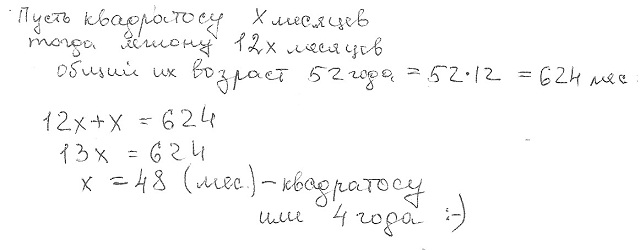 Пусть квадратосу х месяцев
тогда лимону 12х месяцев
общий их возраст 52 года = 52·12 = 624 мес.
12х+х = 624
13х = 624
х = 48 (мес.) – квадратосу
или 4 года :-)